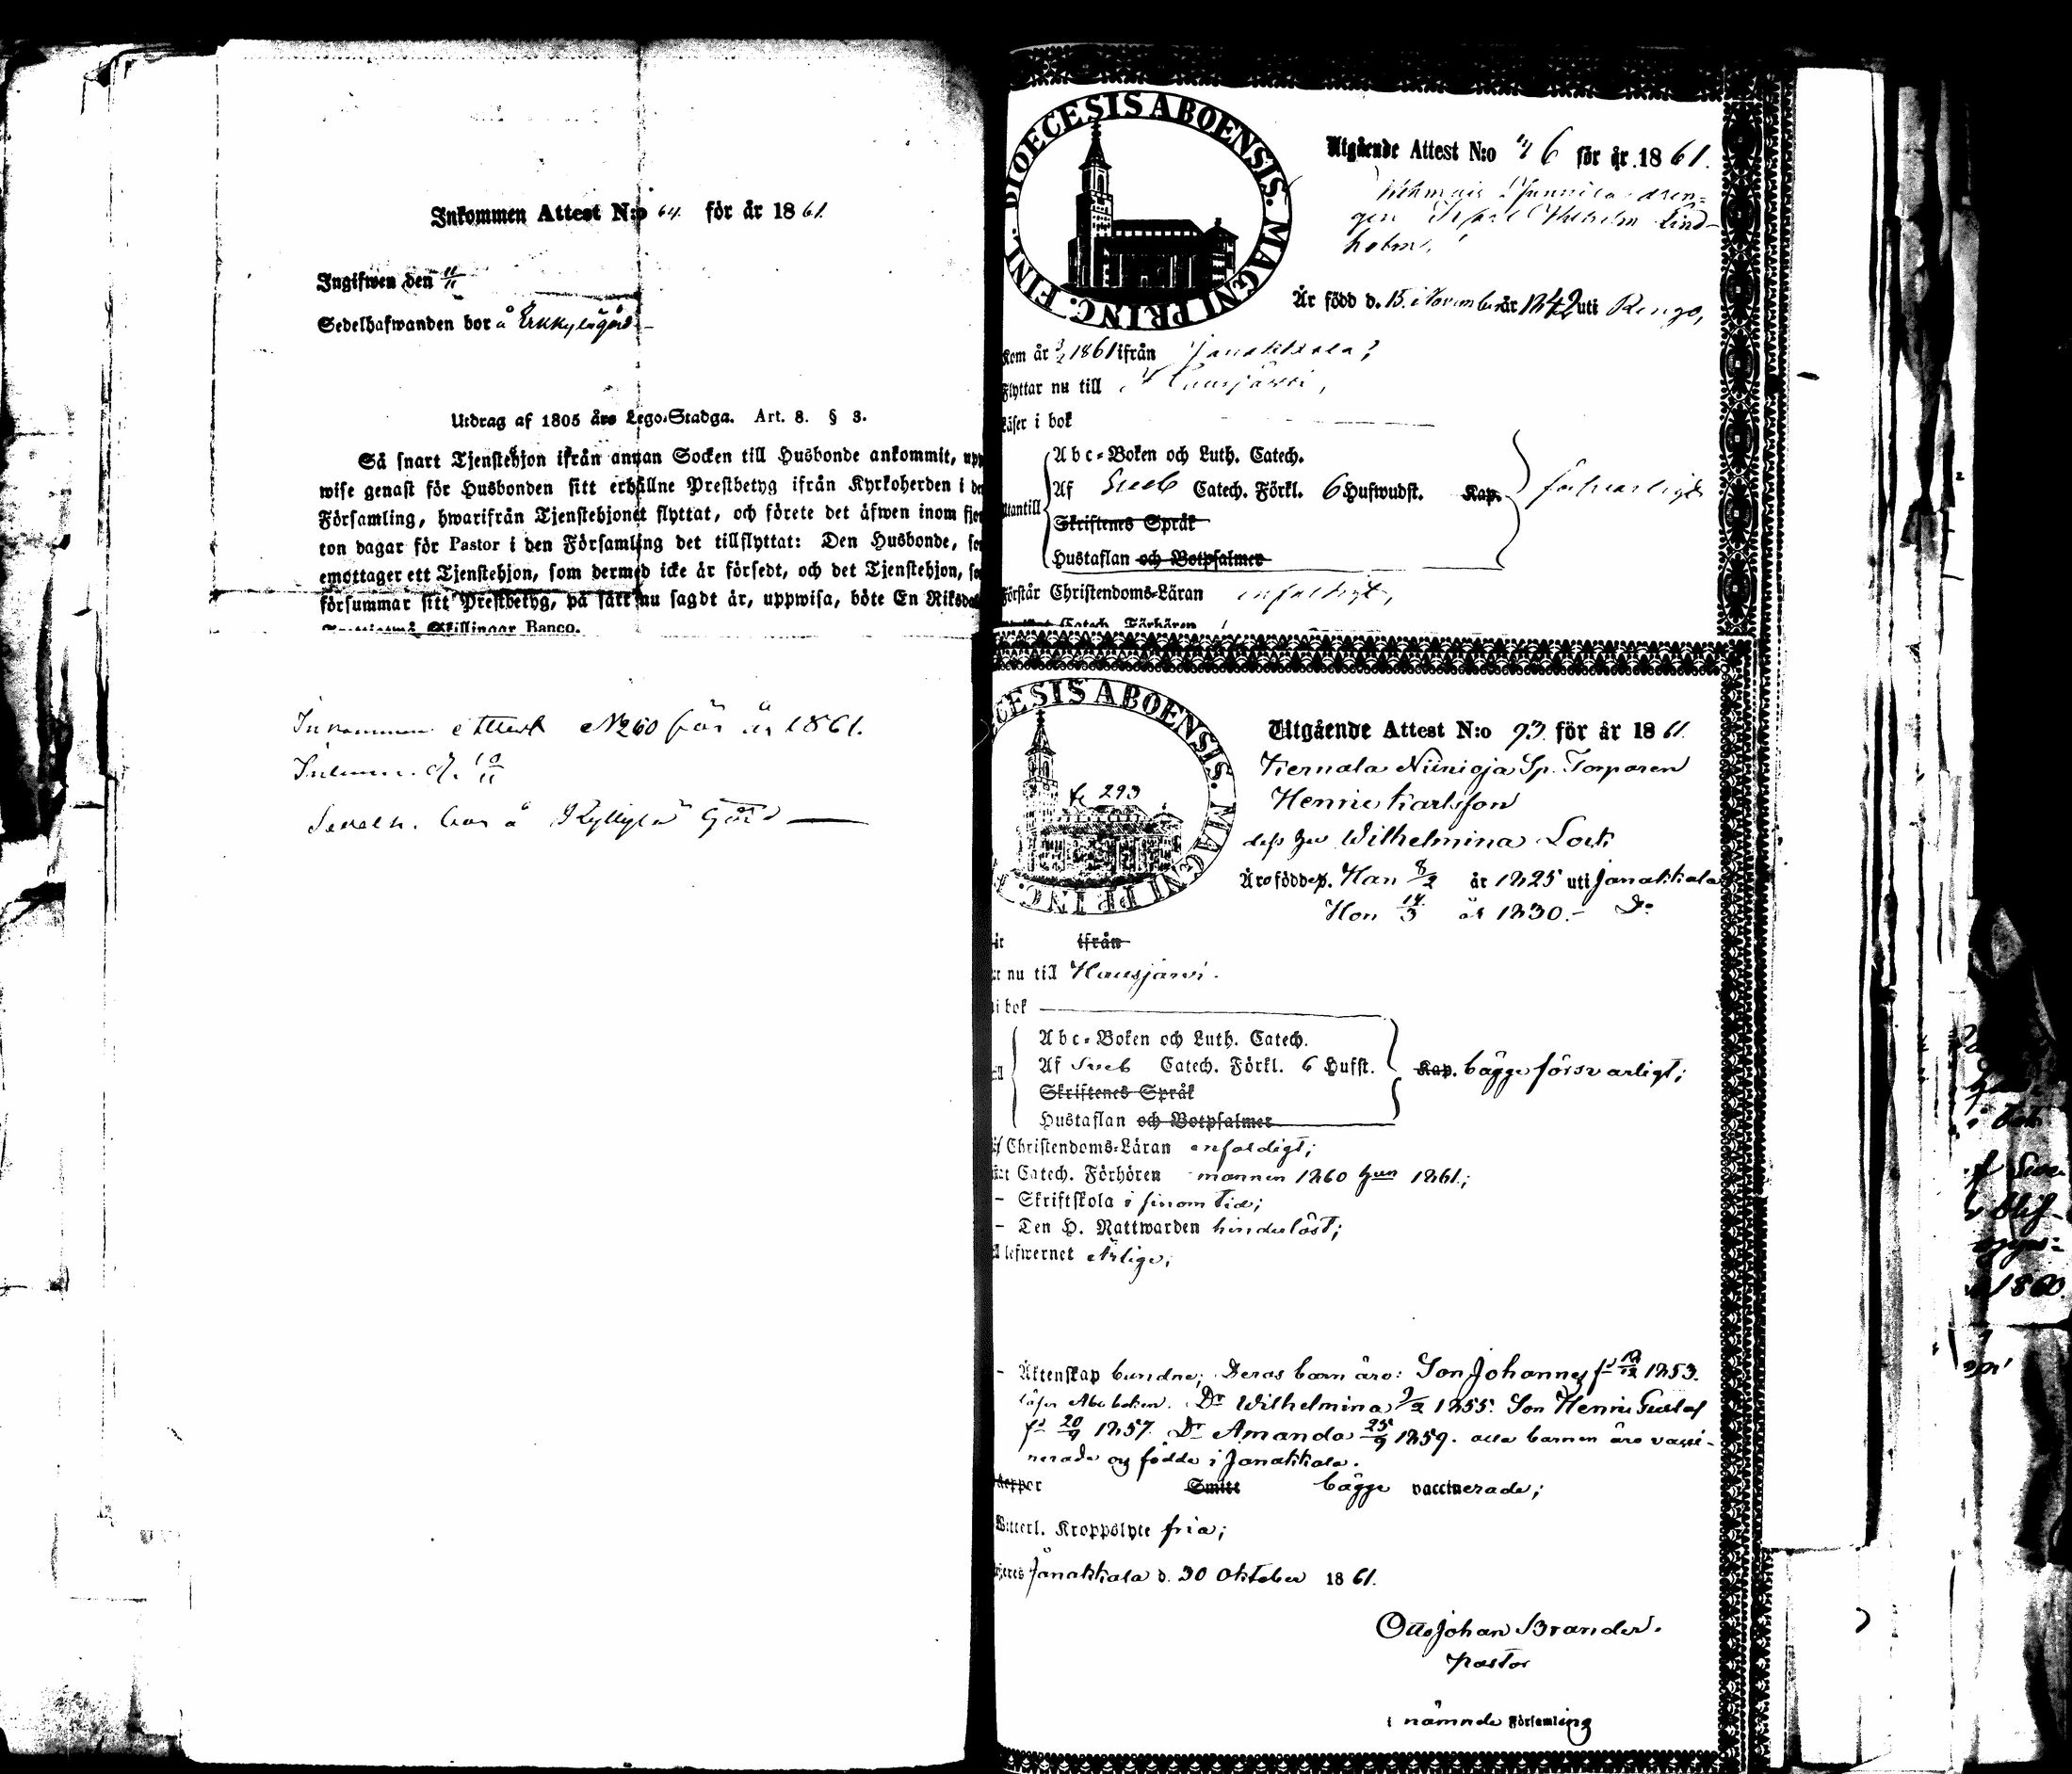 Inkommen Attest N:o 64. för år 1861.
Ingifwen den 11/11
Sedelhafwanden bor å Erkkylä gård
Utdrag af 1805 års Lego-Stadga. Art. 8. § 3.
Så snart Tjenstehjon ifrån annan Socken till Husbonde ankommit, upp
wise genast för Husbonden sitt erhållne Prestbetyg ifrån Kyrkoherden i de
Församling, hwarifrån Tjenstehjonet flyttat, och förete det äfwen inom fjor
ton dagar för Pastor i den Församling det tillflyttat: Den Husbonde, so
emottager ett Tjenstehjon, som dermed icke är försedt, och det Tjenstehjon, so
försummar sitt Prestbetyg, på sätt nu sagdt är, uppwisa, böte En Riksdal
Skillingar Banco.
Inkommen Attest No 60 för år 1861.
d. 10/11
bor å Kyttylä Gård
DIOECESIS ABOENSIS. MAGNI PRINC. FINL.
Utgående Attest N:o 46 för år 1861.
Wilhelm Lind-
holm,
Är född d. 15 November år 1842 uti Rengo,
Kom år 3/2 1861 ifrån Janakkala;
Flyttar nu till Hausjärvi,
Läser i bok
Abc-Boken och Luth. Catech.
Af Sveb Catech. Förkl. 6 Hufwudst. Kap. försvarligt
Utantill
Skriftenes Språk
Hustaflan och Botpsalmer
Förstår Christendoms-Läran enfaldigt,
Catech. Förhören
CESIS ABOENSIS. MAGNI PRINC. F
293
Utgående Attest N:o 93 för år 1861.
Tiernala Niinioja Sp. Torparen
Henric Karlsson
dess hu Wilhelmina Lock
Äro födde p. Han 8/2 år 1825 uti Janakkala
Hon 14/3 år 1830.- Do
ifrån
nu till Hausjärvi.
i bok
Abc-Boken och Luth. Catech.
Af Sveb Catech. Förkl. 6 Hufst. Kap. bägge försvarligt;
Skriftenes Språk
Hustaflan och Botpsalmer
Christendoms-Läran enfaldigt;
Catech. Förhören mannen 1860 hun 1861;
- Skriftskola i sinom tid;
- Den H. Nattwarden hinderlöst;
lefwernet ärlige;
- Äktenskap bundne; Deras barn äro: Son Johannes fd 12/12 1853.
läser Abc boken. Dr Wilhelmina 9/2 1855. Son Henric Gustaf
fd 20/9 1857. Dr Amanda 25/9 1859. alla barnen äro vacci-
nerade og födde i Janakkala.
Koppor Smitt bägge vaccinerade;
Witterl. Kroppslyte fria;
Janakkala d. 30 Oktober 1861.
Otto Johan Brander.
Pastor
i nämnde Församling
1860.